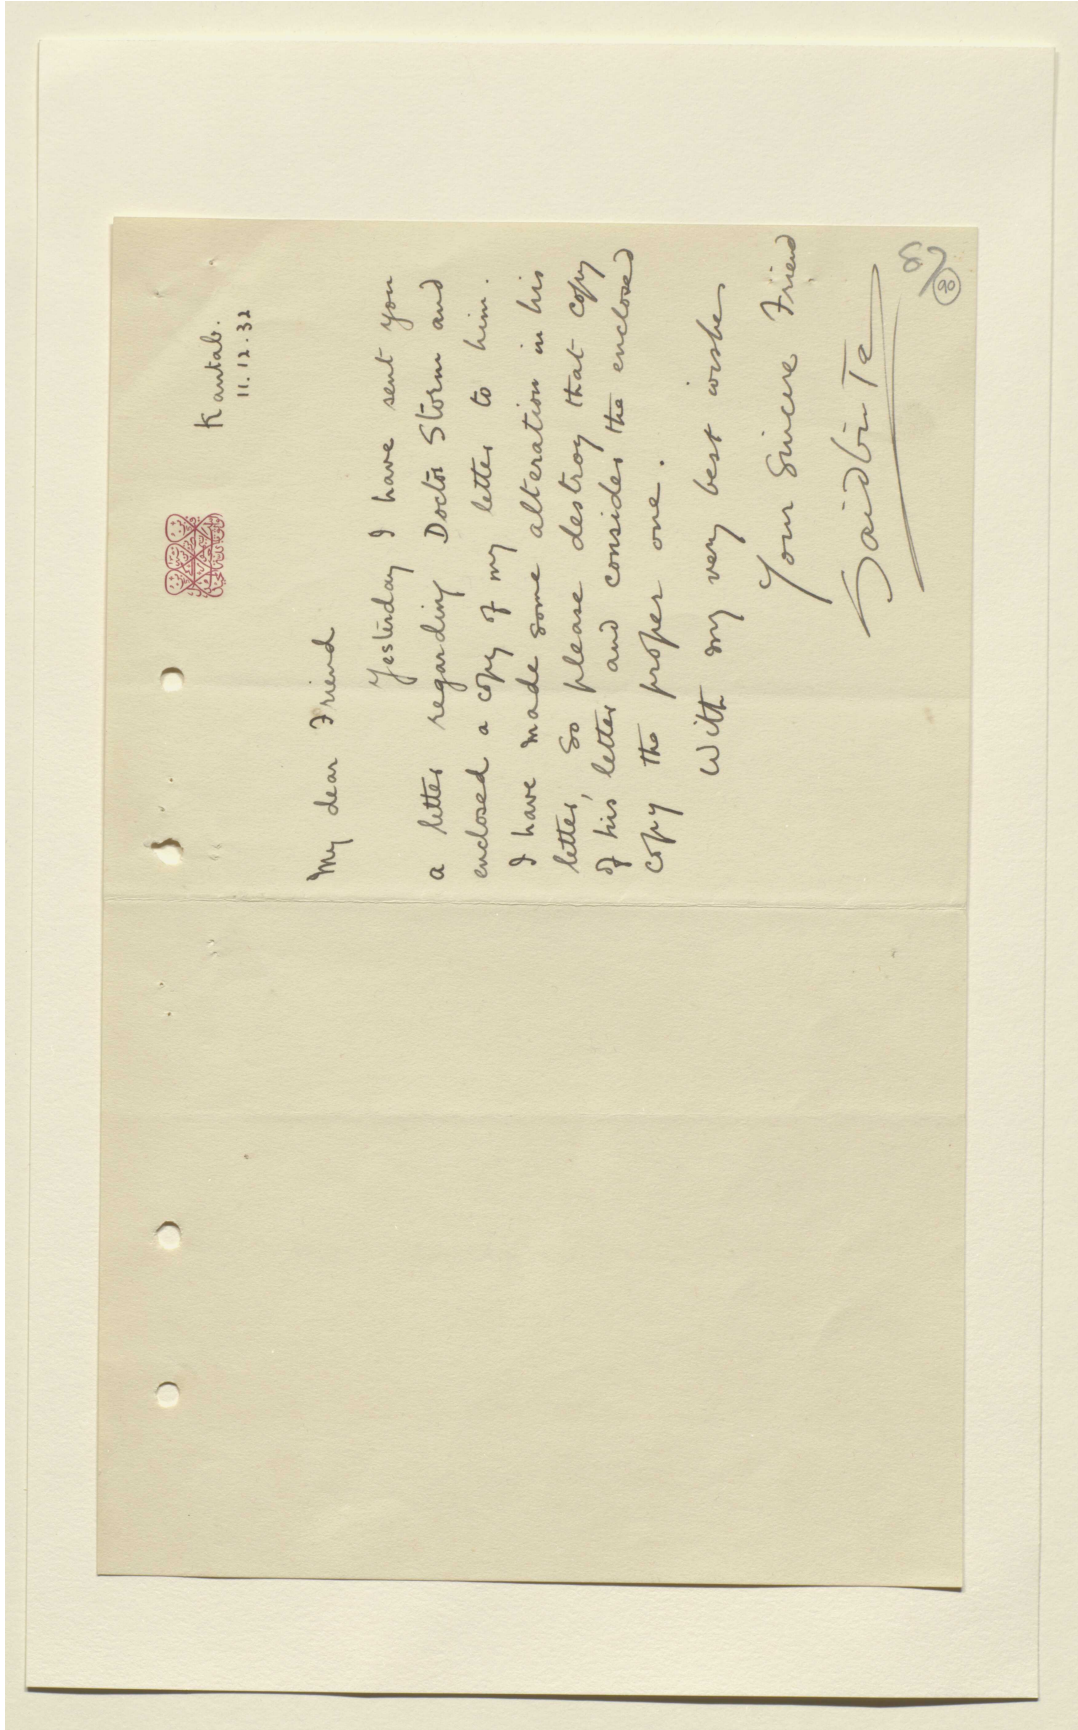 Kantab.
11.12.32
My dear Friend
Yesterday I have sent you
a letter regarding Doctor Storm and
enclosed a copy of my letter to him.
I have made some alteration in his
letter, So please destroy that copy
of his letter and consider the enclosed
copy the proper one.
With my very best wishes
Your Sincere Friend
Said bin Te
87
90